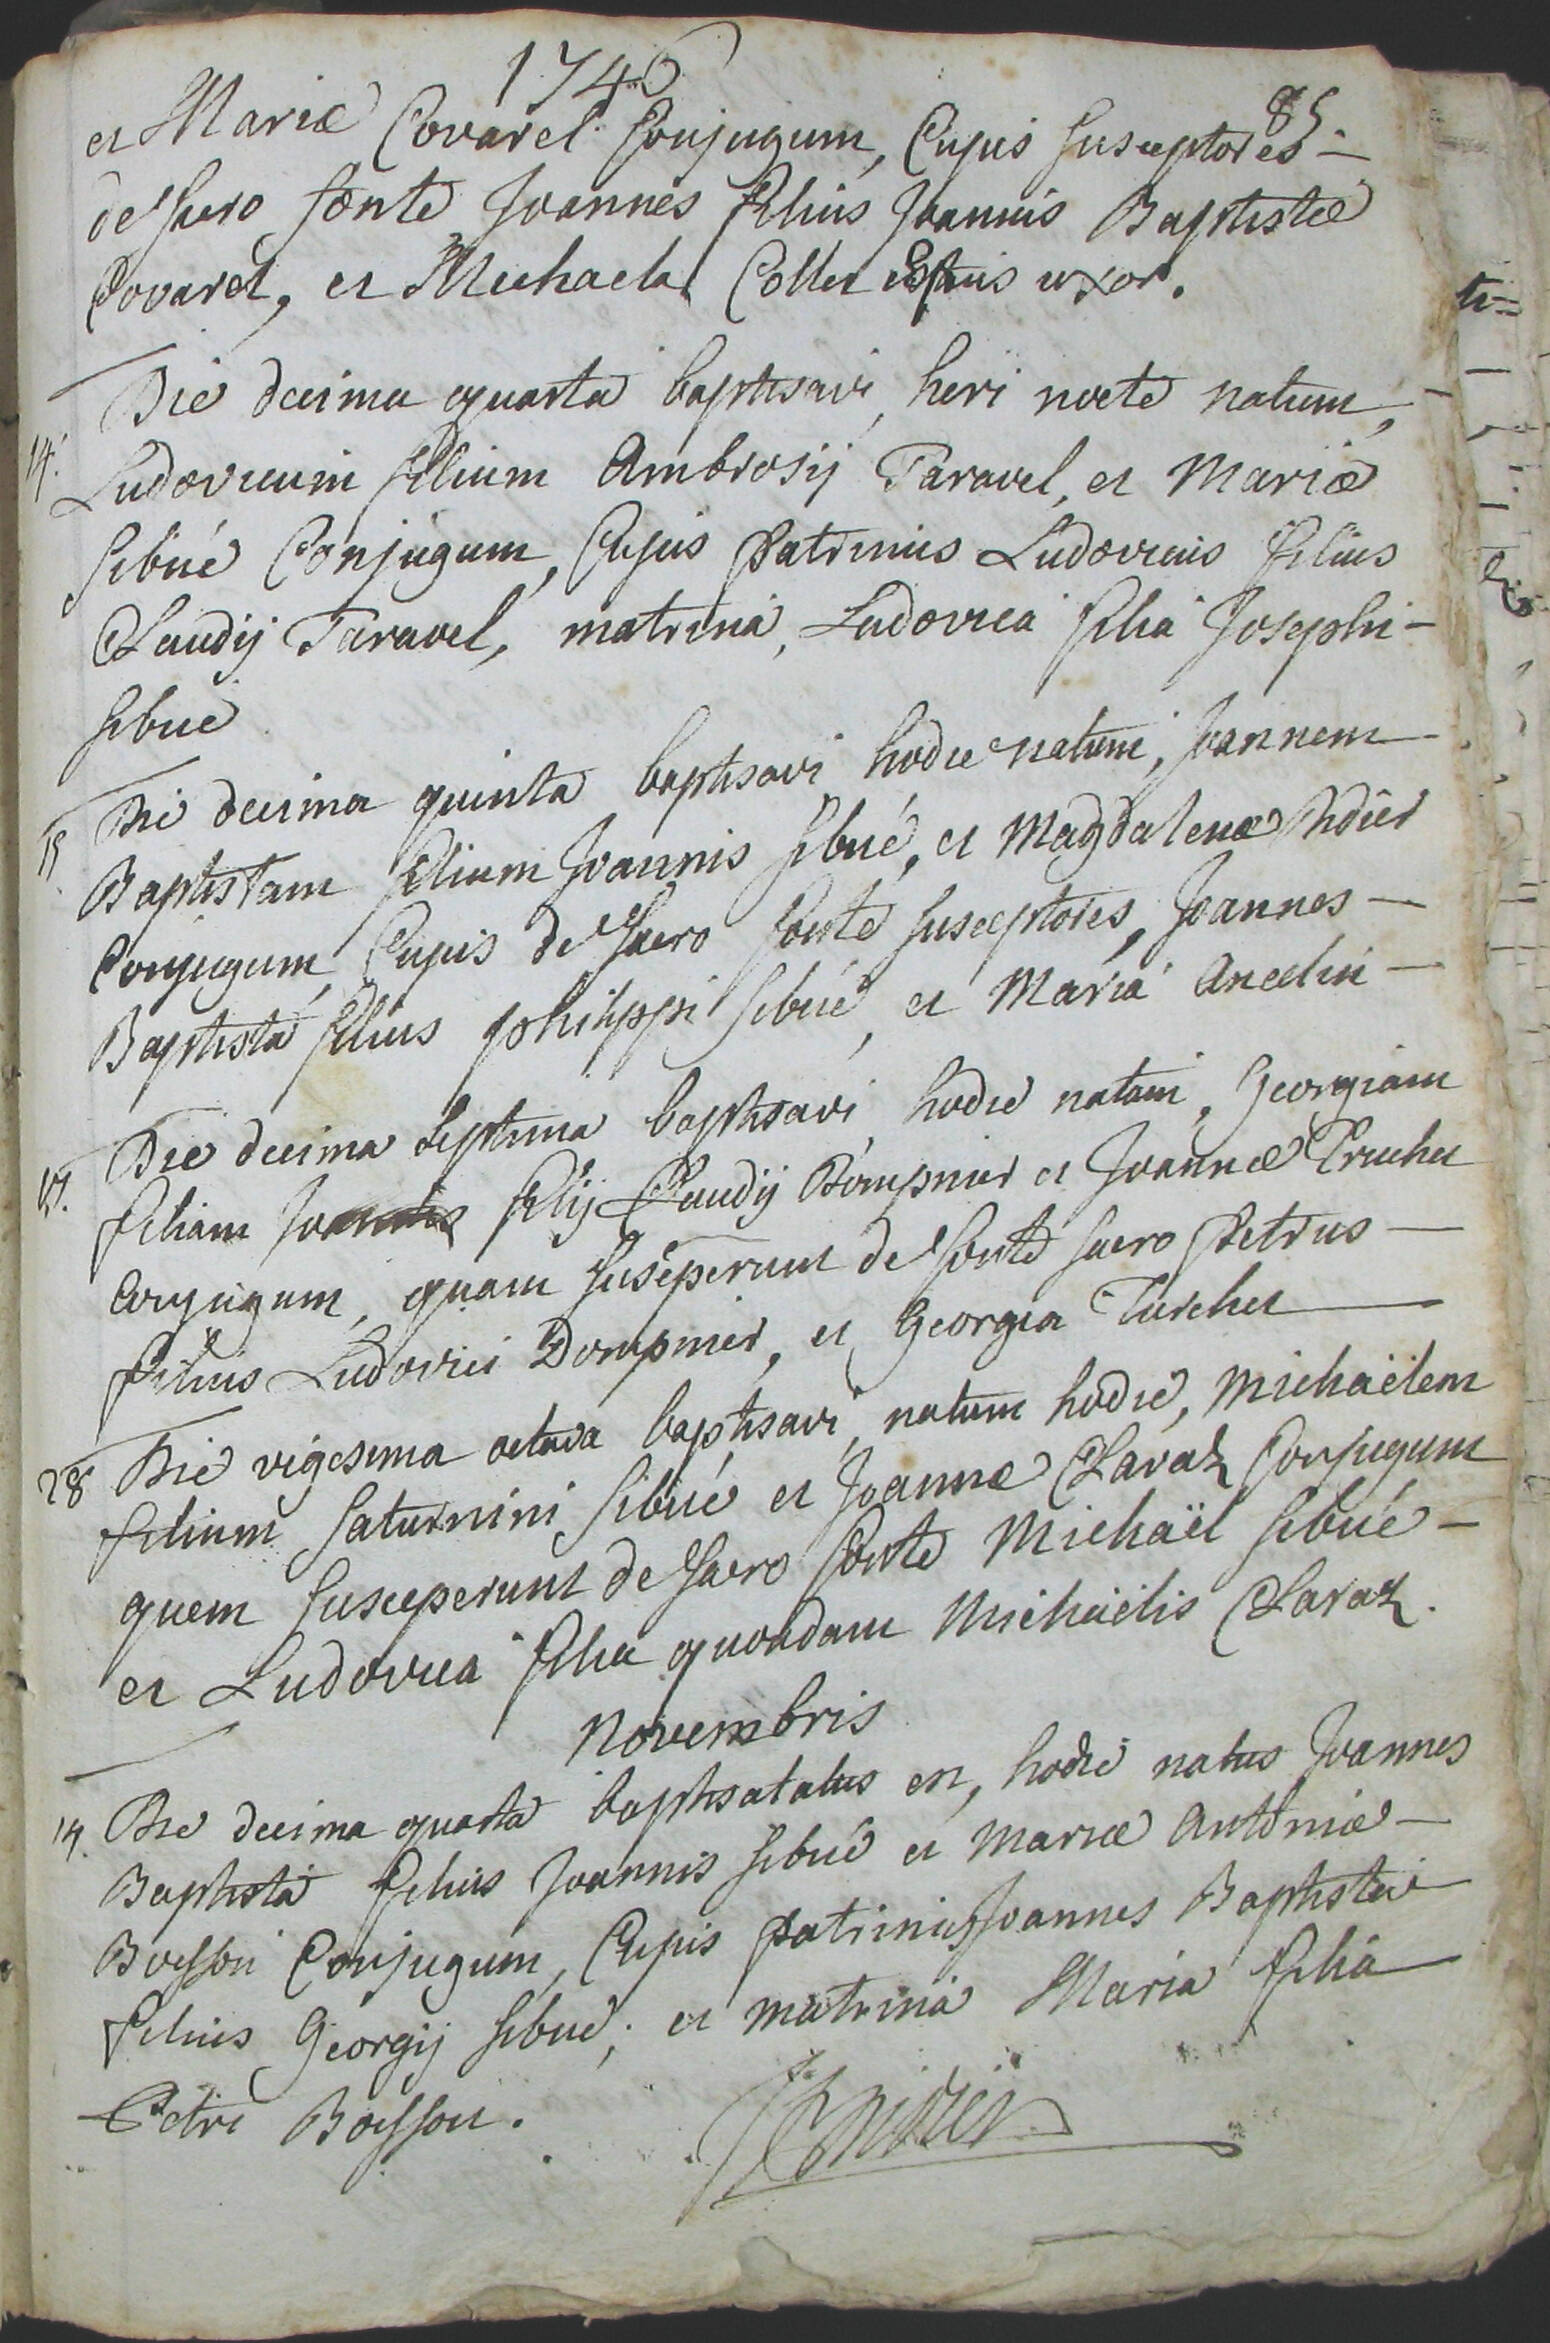 1746
85
et Mariæ Covarel Conjugum, Cujus susceptores -
de sacro fonte Joannes filius Joannis Baptistæ
Covarel, et Michaela Collet uxor.
14. Die decima quarta baptisavi, heri nocte natum,
Ludovicum filium Ambrosij Taravel, et Mariæ
Sibué Conjugum, Cujus Patrinus Ludovicus filius
Claudij Taravel, matrina, Ludovica filia Josephi -
Sibué
15 Die decima quinta baptisavi, hodie natum, Joannem
Baptistam filium Joannis Sibué, et Magdalenæ Didier
Conjugum, Cujus de sacro fonte susceptores, Joannes -
Baptista filius philippi Sibué, et Maria Ancelin -
17. Die decima septima baptisavi, hodie natam, Georgiam
filiam filij Claudij Dompnier et Joannæ Truchet
Conjugum, quam susceperunt de fonte sacro Petrus -
filius Ludovici Dompnier, et Georgia Turchet
28 Die vigesima octava baptisavi, natum hodie, Michaëlem
filium Saturnini Sibué et Joannæ Claraz Conjugum
quem susceperunt de sacro fonte Michaël Sibué -
et Ludovica filia quondam Michaëlis Claraz.
Novembris
14. Die decima quarta baptisatus est, hodie natus Joannes
Baptista filius Joannis Sibué et Mariæ Antoniæ -
Boisson Conjugum, Cujus Patrinus Joannes Baptista
filius Georgij Sibué, et matrina Maria filia
Petri Boisson.